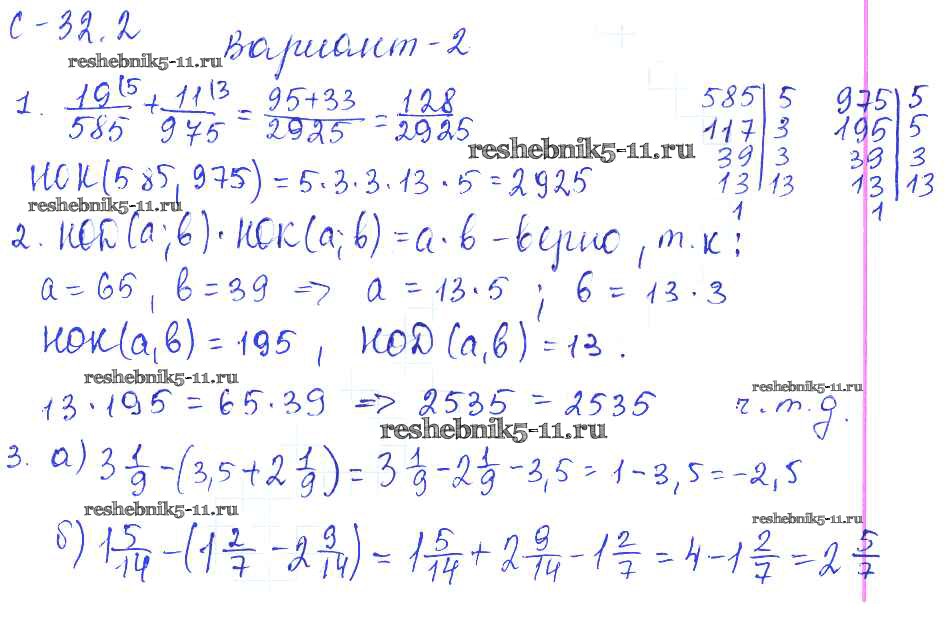 С-32.2
Вариант-2
reshebnik5-11.ru
1. 19(5/585 + 11(3/975 = 95+33/2925 = 128/2925
reshebnik5-11.ru
НОК(585, 975) = 5·3·3·13·5 = 2925
reshebnik5-11.ru
585|5
117|3
39|3
13|13
1
975|5
195|5
39|3
13|13
1
2. НОД(а;в)·НОК(а;в) = а·в - верно, т.к:
а = 65, в = 39 => а = 13·5 ; в = 13·3
НОК(а,в) = 195, НОД(а,в) = 13.
reshebnik5-11.ru
reshebnik5-11.ru
13·195 = 65·39 => 2535 = 2535 ч.т.д.
reshebnik5-11.ru
3. а) 3 1/9 - (3,5 + 2 1/9) = 3 1/9 - 2 1/9 - 3,5 = 1 - 3,5 = -2,5
reshebnik5-11.ru
reshebnik5-11.ru
б) 1 5/14 - (1 2/7 - 2 9/14) = 1 5/14 + 2 9/14 - 1 2/7 = 4 - 1 2/7 = 2 5/7